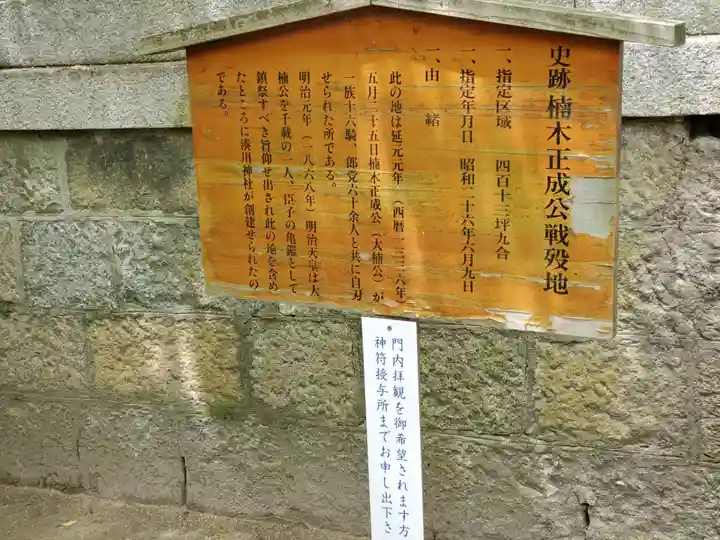 史跡 楠木正成公戦歿地
一、指定区域 四百十三坪九合
一、指定年月日 昭和二十六年六月九日
一、由 緒
此の地は延元元年(西暦一三三六年)
五月二十五日楠木正成公(大楠公)が
一族十六騎、郎党六十余人と共に自刃
せられた所である。
明治元年(一八六八年)明治天皇は大
楠公を千載の一人、臣子の亀鑑として
鎮祭すべき旨仰せ出され此の地を含め
たところに湊川神社が創建せられたの
である。
門内拝観を御希望されます方
神符授与所までお申し出下さ